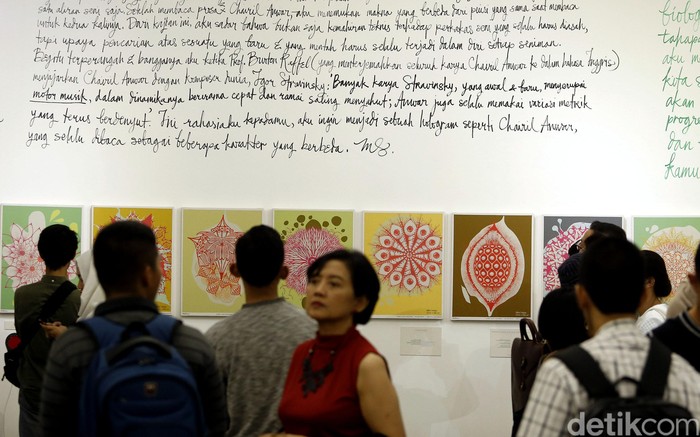 satu aliran seni saja. Setelah membaca prosa² Chairil Anwar, aku menemukan makna yang berbeda dari puisi yang sama saat membaca
untuk kedua kalinya. Dari kajian ini, aku sadar bahwa bukan saja kematangan teknis terhadap perkakas seni yang selalu harus diasah,
tapi upaya pencarian atas sesuatu yang baru & yang mentah harus selalu terjadi dalam diri setiap seniman.
Begitu terperangah & bangganya aku ketika Prof. Burton Raffel (yang menterjemahkan seluruh karya Chairil Anwar ke dalam bahasa Inggris)
menyejajarkan Chairil Anwar dengan komposer dunia, Igor Stravinsky: 'Banyak karya Stravinsky, yang awal & baru, menyerupai
motor musik, dalam dinamikanya berwarna cepat dan ramai saling menyahut; Anwar juga selalu memakai variasi metrik
yang terus berdenyut.' Ini rahasiaku kepadamu, aku ingin menjadi sebuah hologram seperti Chairil Anwar,
yang selalu dibaca sebagai beberapa karakter yang berbeda.
biolo
tapapa
aku m
kota s
akan
progre
dan t
kamu
detikcom